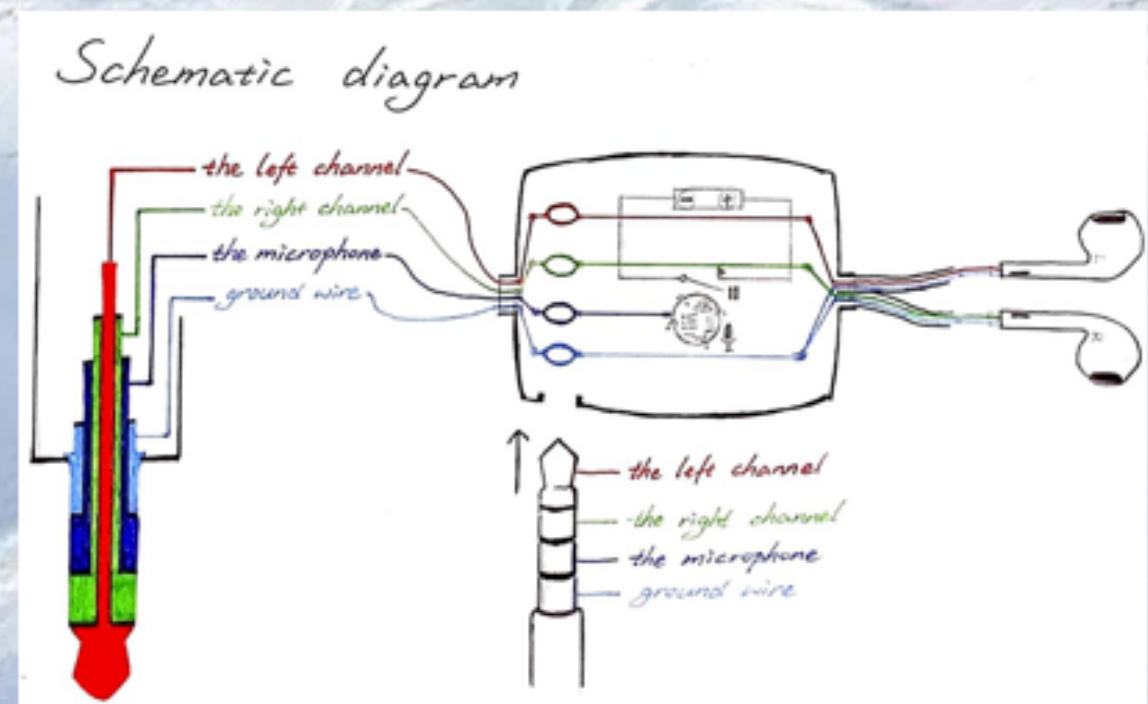 Schematic diagram
the left channel
the right channel
the microphone
ground wire
the left channel
the right channel
the microphone
ground wire